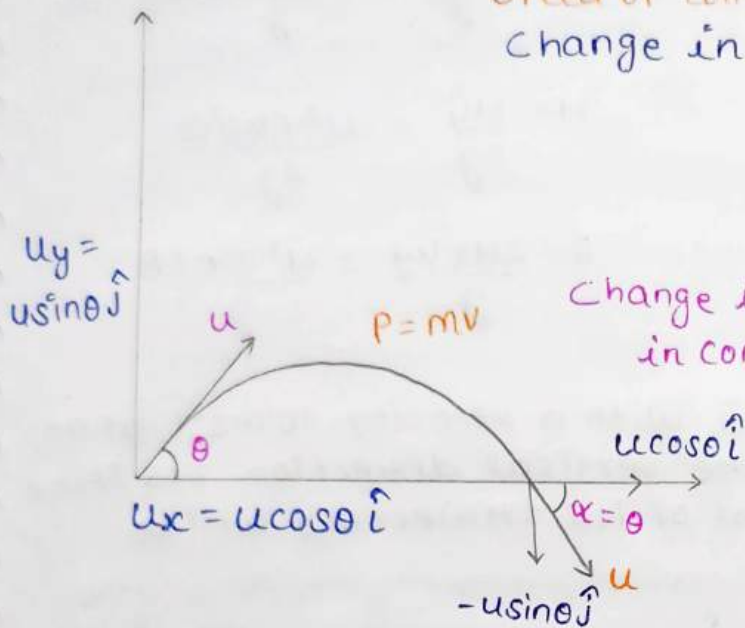 Change in
uy =
usinθĵ
u
P = mv
Change i
in con
θ
ucosθî
ux = ucosθî
α = θ
u
-usinθĵ